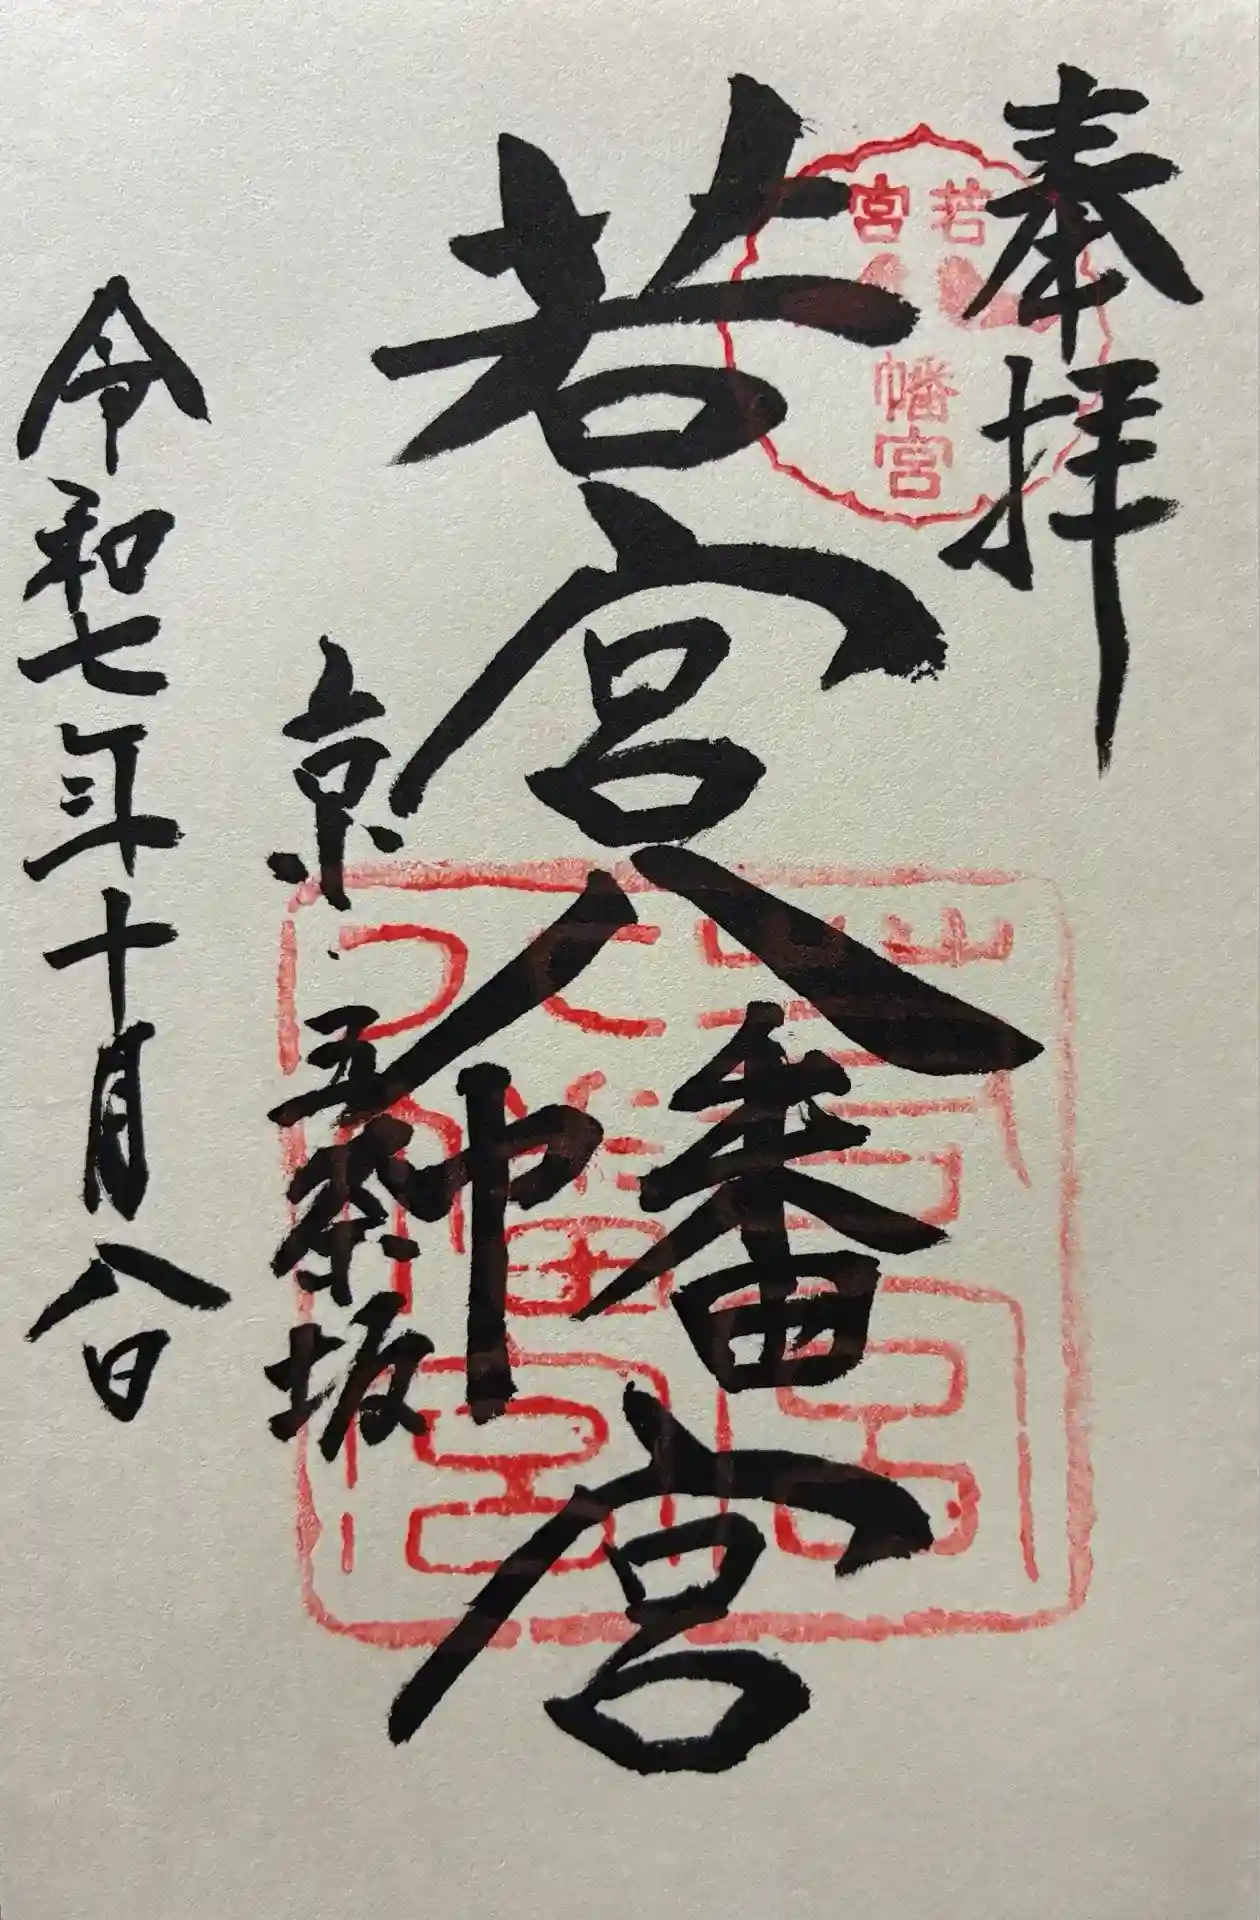 奉拝
若宮
幡宮
若宮八幡宮
若宮
八幡宮
京五条坂
令和七年十月八日